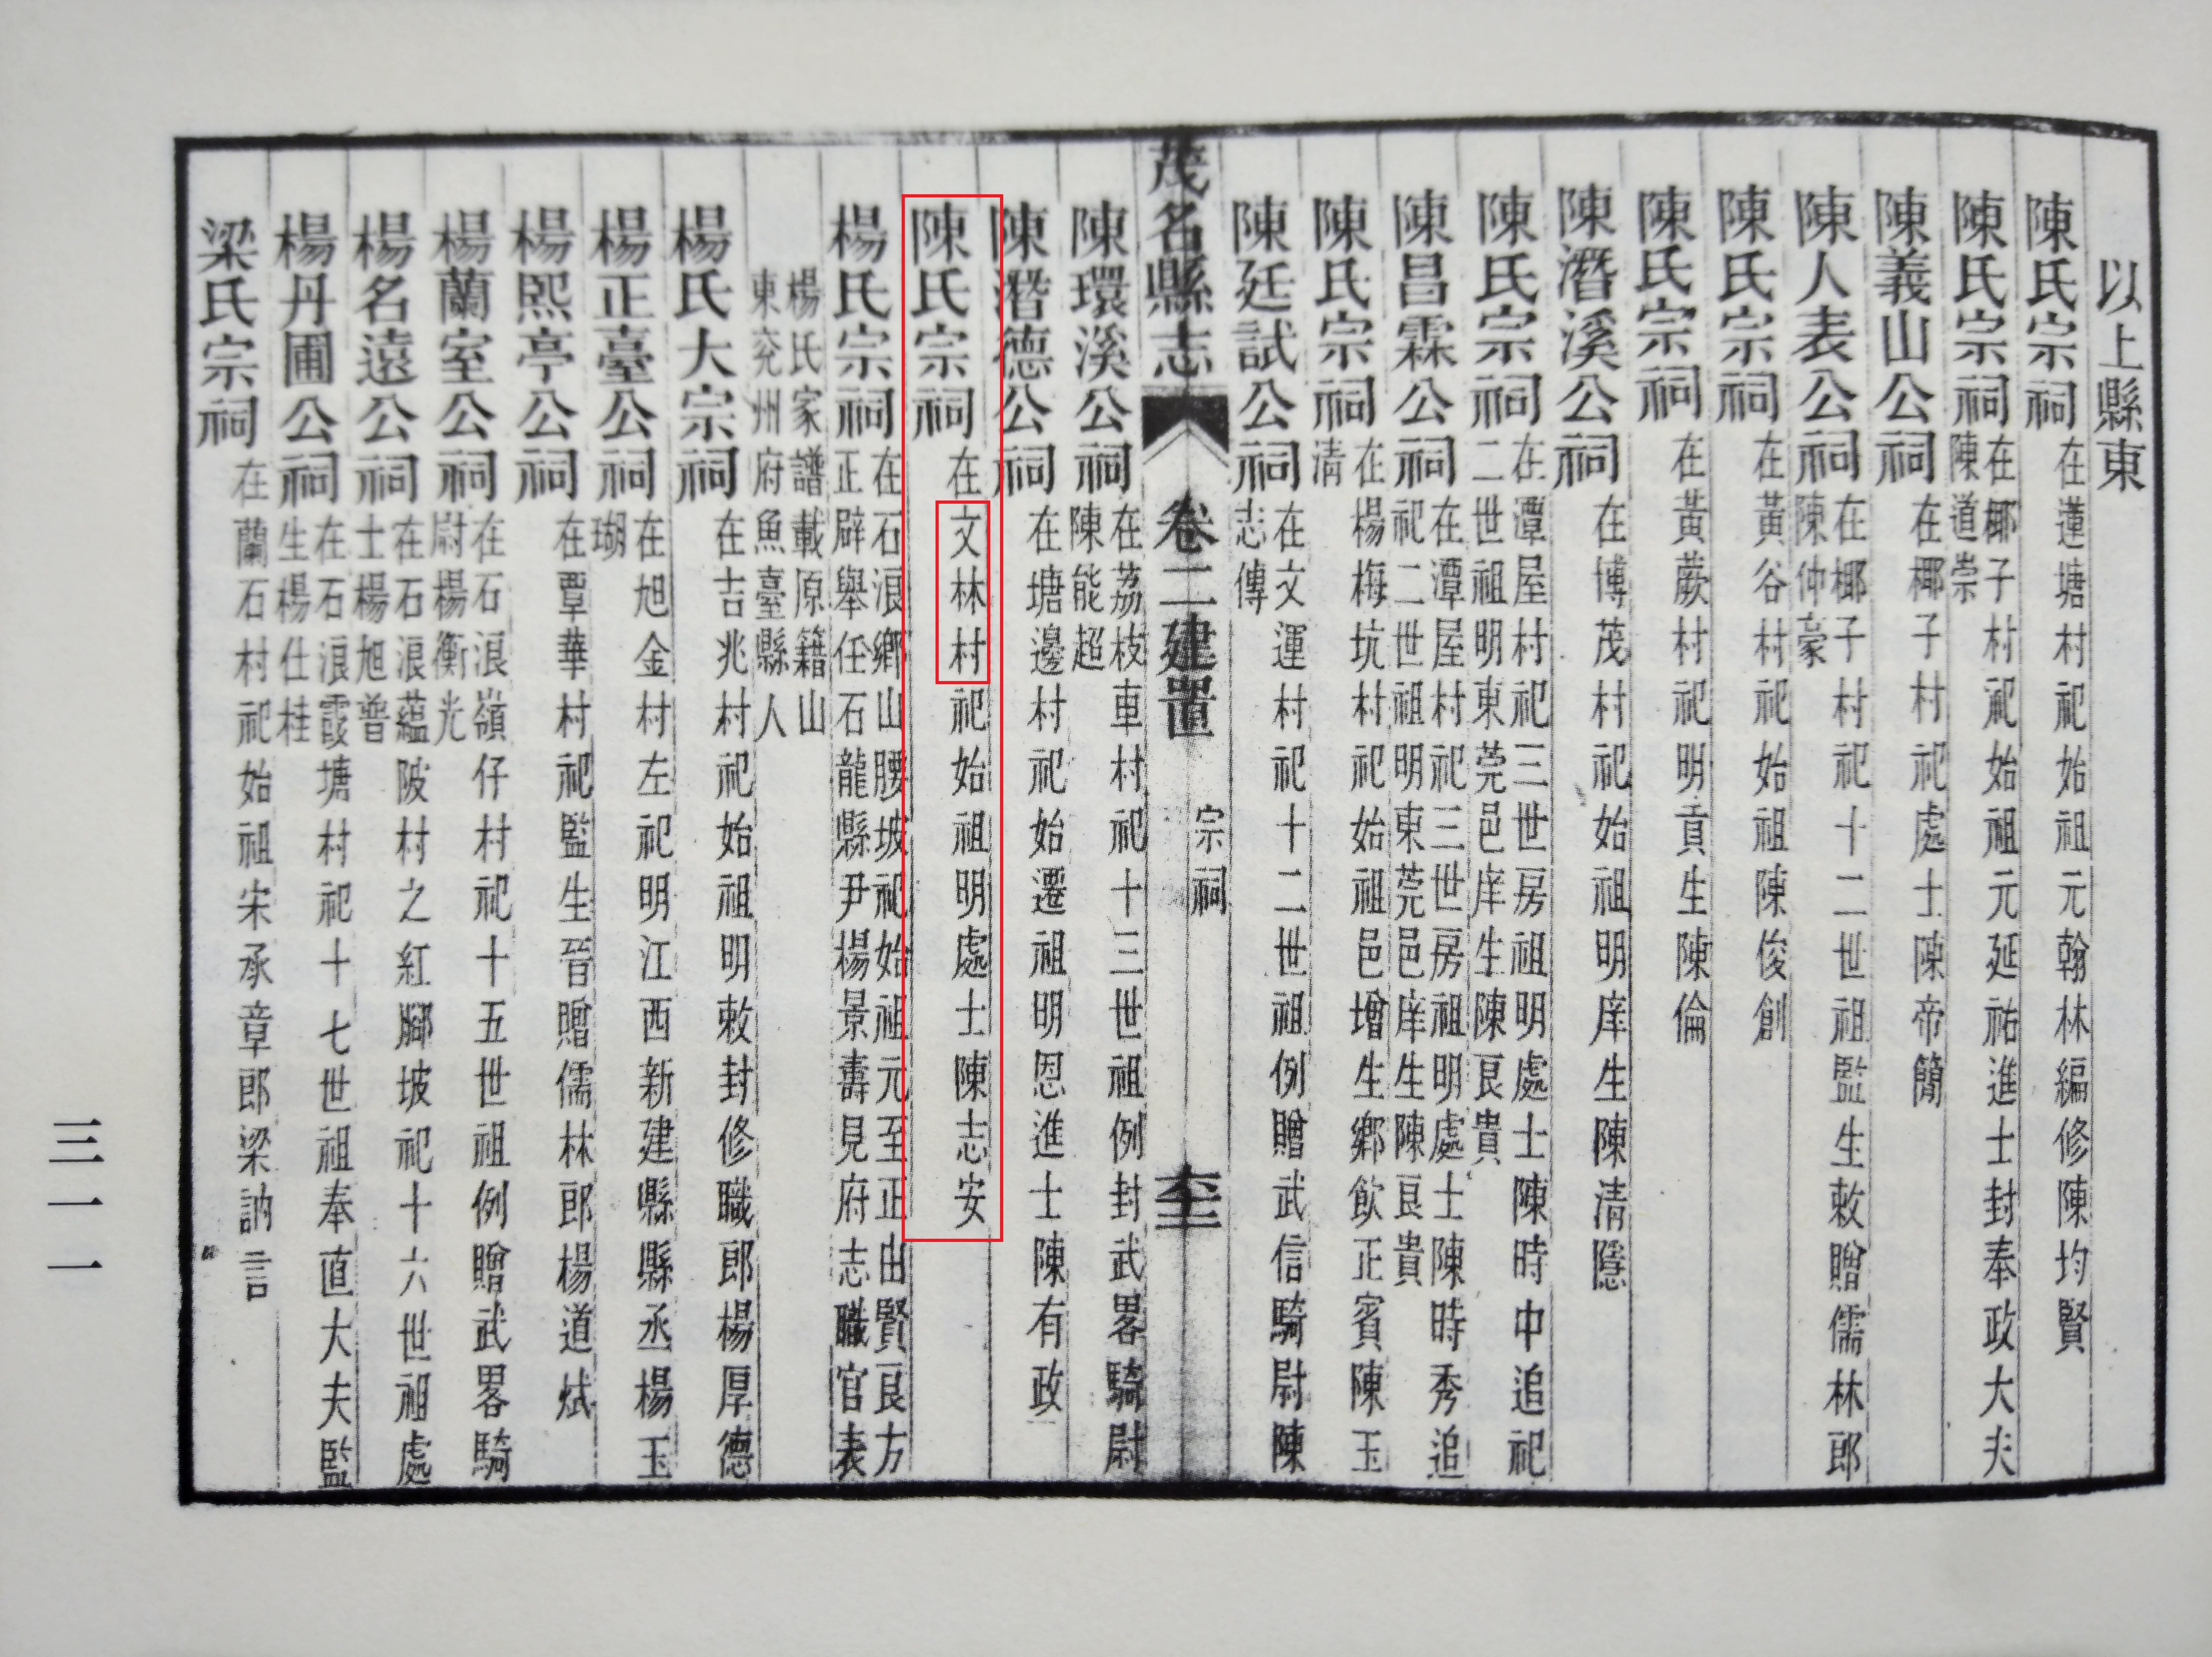 以上縣東
陳氏宗祠在蓮塘村祀始祖元翰林編修陳均賢
陳氏宗祠在椰子村祀始祖元延祐進士封奉政大夫陳道崇
陳義山公祠在椰子村祀處士陳帝簡
陳人表公祠在椰子村祀十二世祖監生敕贈儒林郎陳仲豪
陳氏宗祠在黃谷村祀始祖陳俊創
陳氏宗祠在黃蕨村祀明貢生陳倫
陳潛溪公祠在博茂村祀始祖明庠生陳清隱
陳氏宗祠在潭屋村祀三世房祖明處士陳時中追祀二世祖明東莞邑庠生陳良貴
陳昌霖公祠在潭屋村祀三世房祖明處士陳時秀追祀二世祖明東莞邑庠生陳良貴
陳氏宗祠在楊梅坑村祀始祖邑增生鄉飲正賓陳玉清
陳廷試公祠在文運村祀十二世祖例贈武信騎尉陳志傳
茂名縣志 卷二建置 宗祠 奎
陳環溪公祠在荔枝車村祀十三世祖例封武畧騎尉陳能超
陳潛德公祠在塘邊村祀始遷祖明恩進士陳有政
陳氏宗祠在文林村祀始祖明處士陳志安
楊氏宗祠在石浪鄉山腰坡祀始祖元至正由賢良方正辟舉任石龍縣尹楊景壽見府志職官表
楊氏家譜載原籍山東兗州府魚臺縣人
楊氏大宗祠在吉兆村祀始祖明敕封修職郎楊厚德
楊正臺公祠在旭金村左祀明江西新建縣縣丞楊玉瑚
楊熙亭公祠在覃華村祀監生晉贈儒林郎楊道斌
楊蘭室公祠在石浪嶺仔村祀十五世祖例贈武畧騎尉楊衡光
楊名遠公祠在石浪蘊陂村之紅腳坡祀十六世祖處士楊旭普
楊丹圃公祠在石浪霞塘村祀十七世祖奉直大夫監生楊仕桂
梁氏宗祠在蘭石村祀始祖宋承章郎梁訥言
三一一